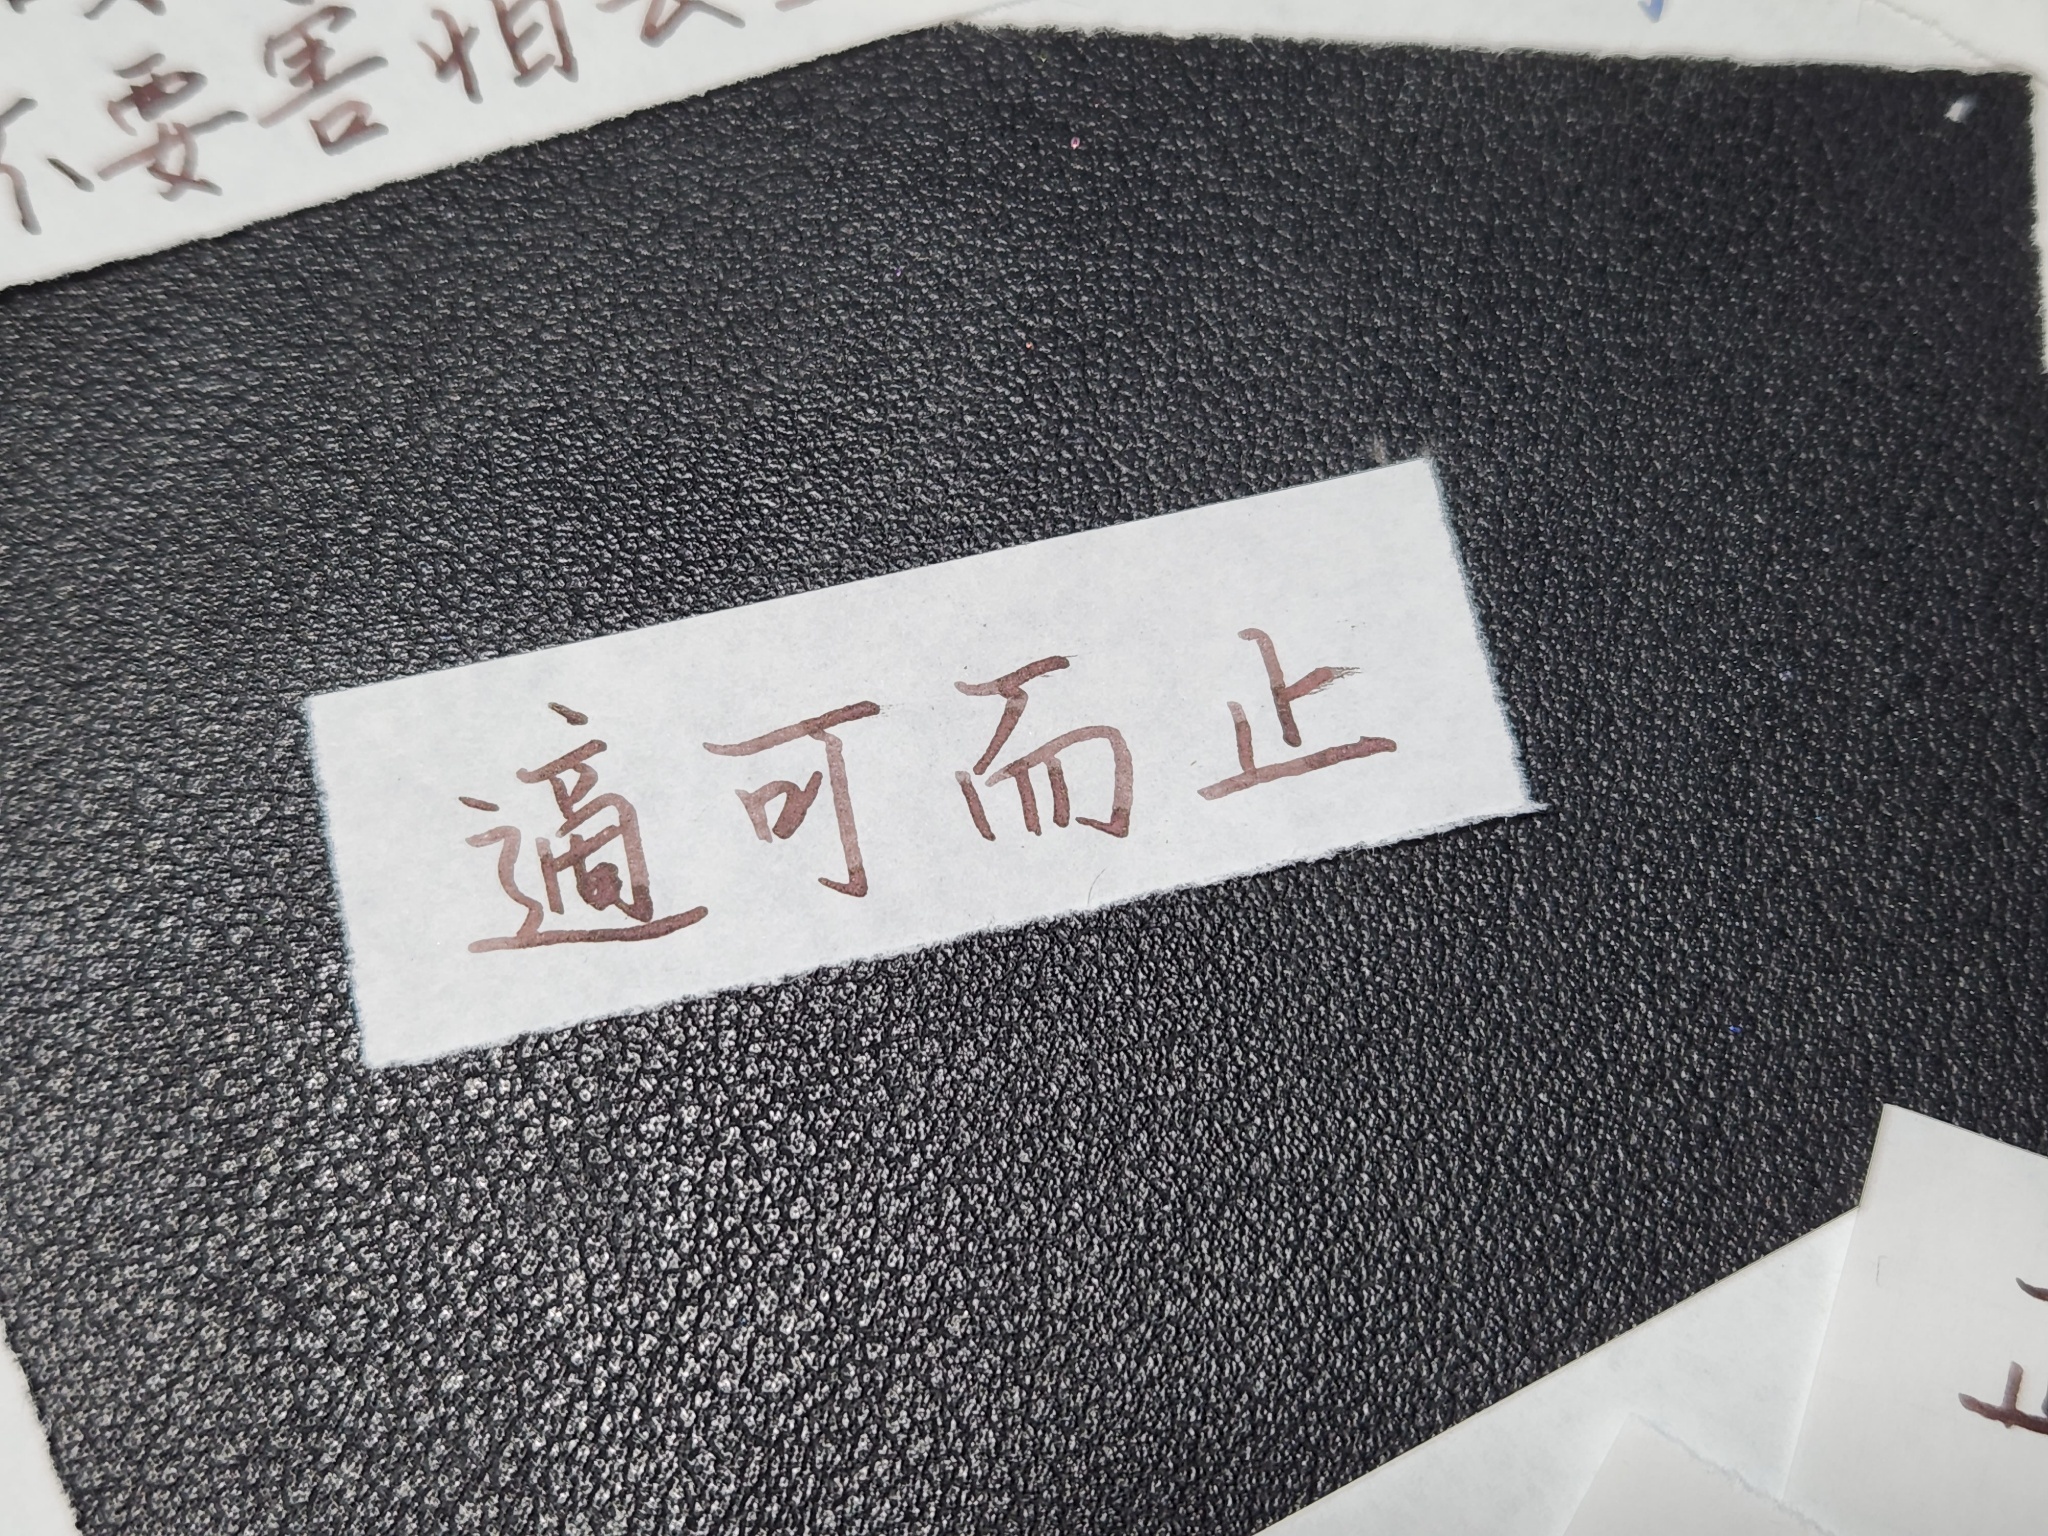 不要害怕
適可而止